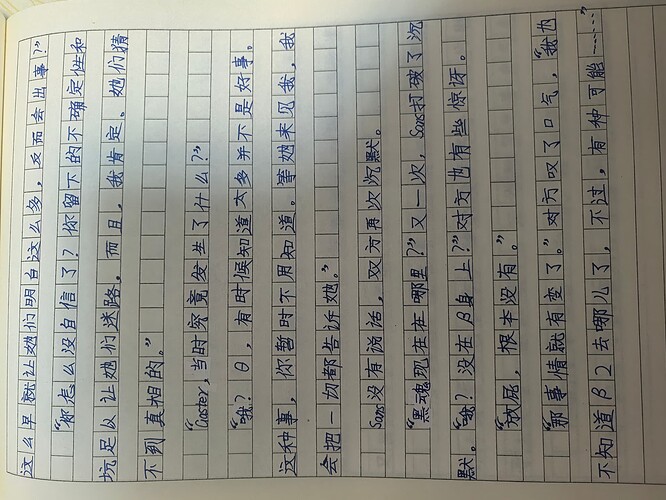 这么早就让她们明白这么多，反而会出事？”
“你怎么没自信了？你留下的不确定性和
坑足以让她们迷路，而且，我肯定，她们猜
不到真相的。”
“Caster，当时究竟发生了什么？”
“哦？θ，有时候知道太多并不是好事。
这种事，你暂时不用知道。等她来见我，我
会把一切都告诉她。”
Sans没有说话，双方再次沉默。
“黑魂现在在哪里？”又一次，Sans打破了沉
默。“哦？没在β身上？”对方凸有些惊讶。
“放屁，根本没有。”
“那事情就有变了。”对方叹了口气，“我也
不知道β2去哪儿了，不过，有种可能……”